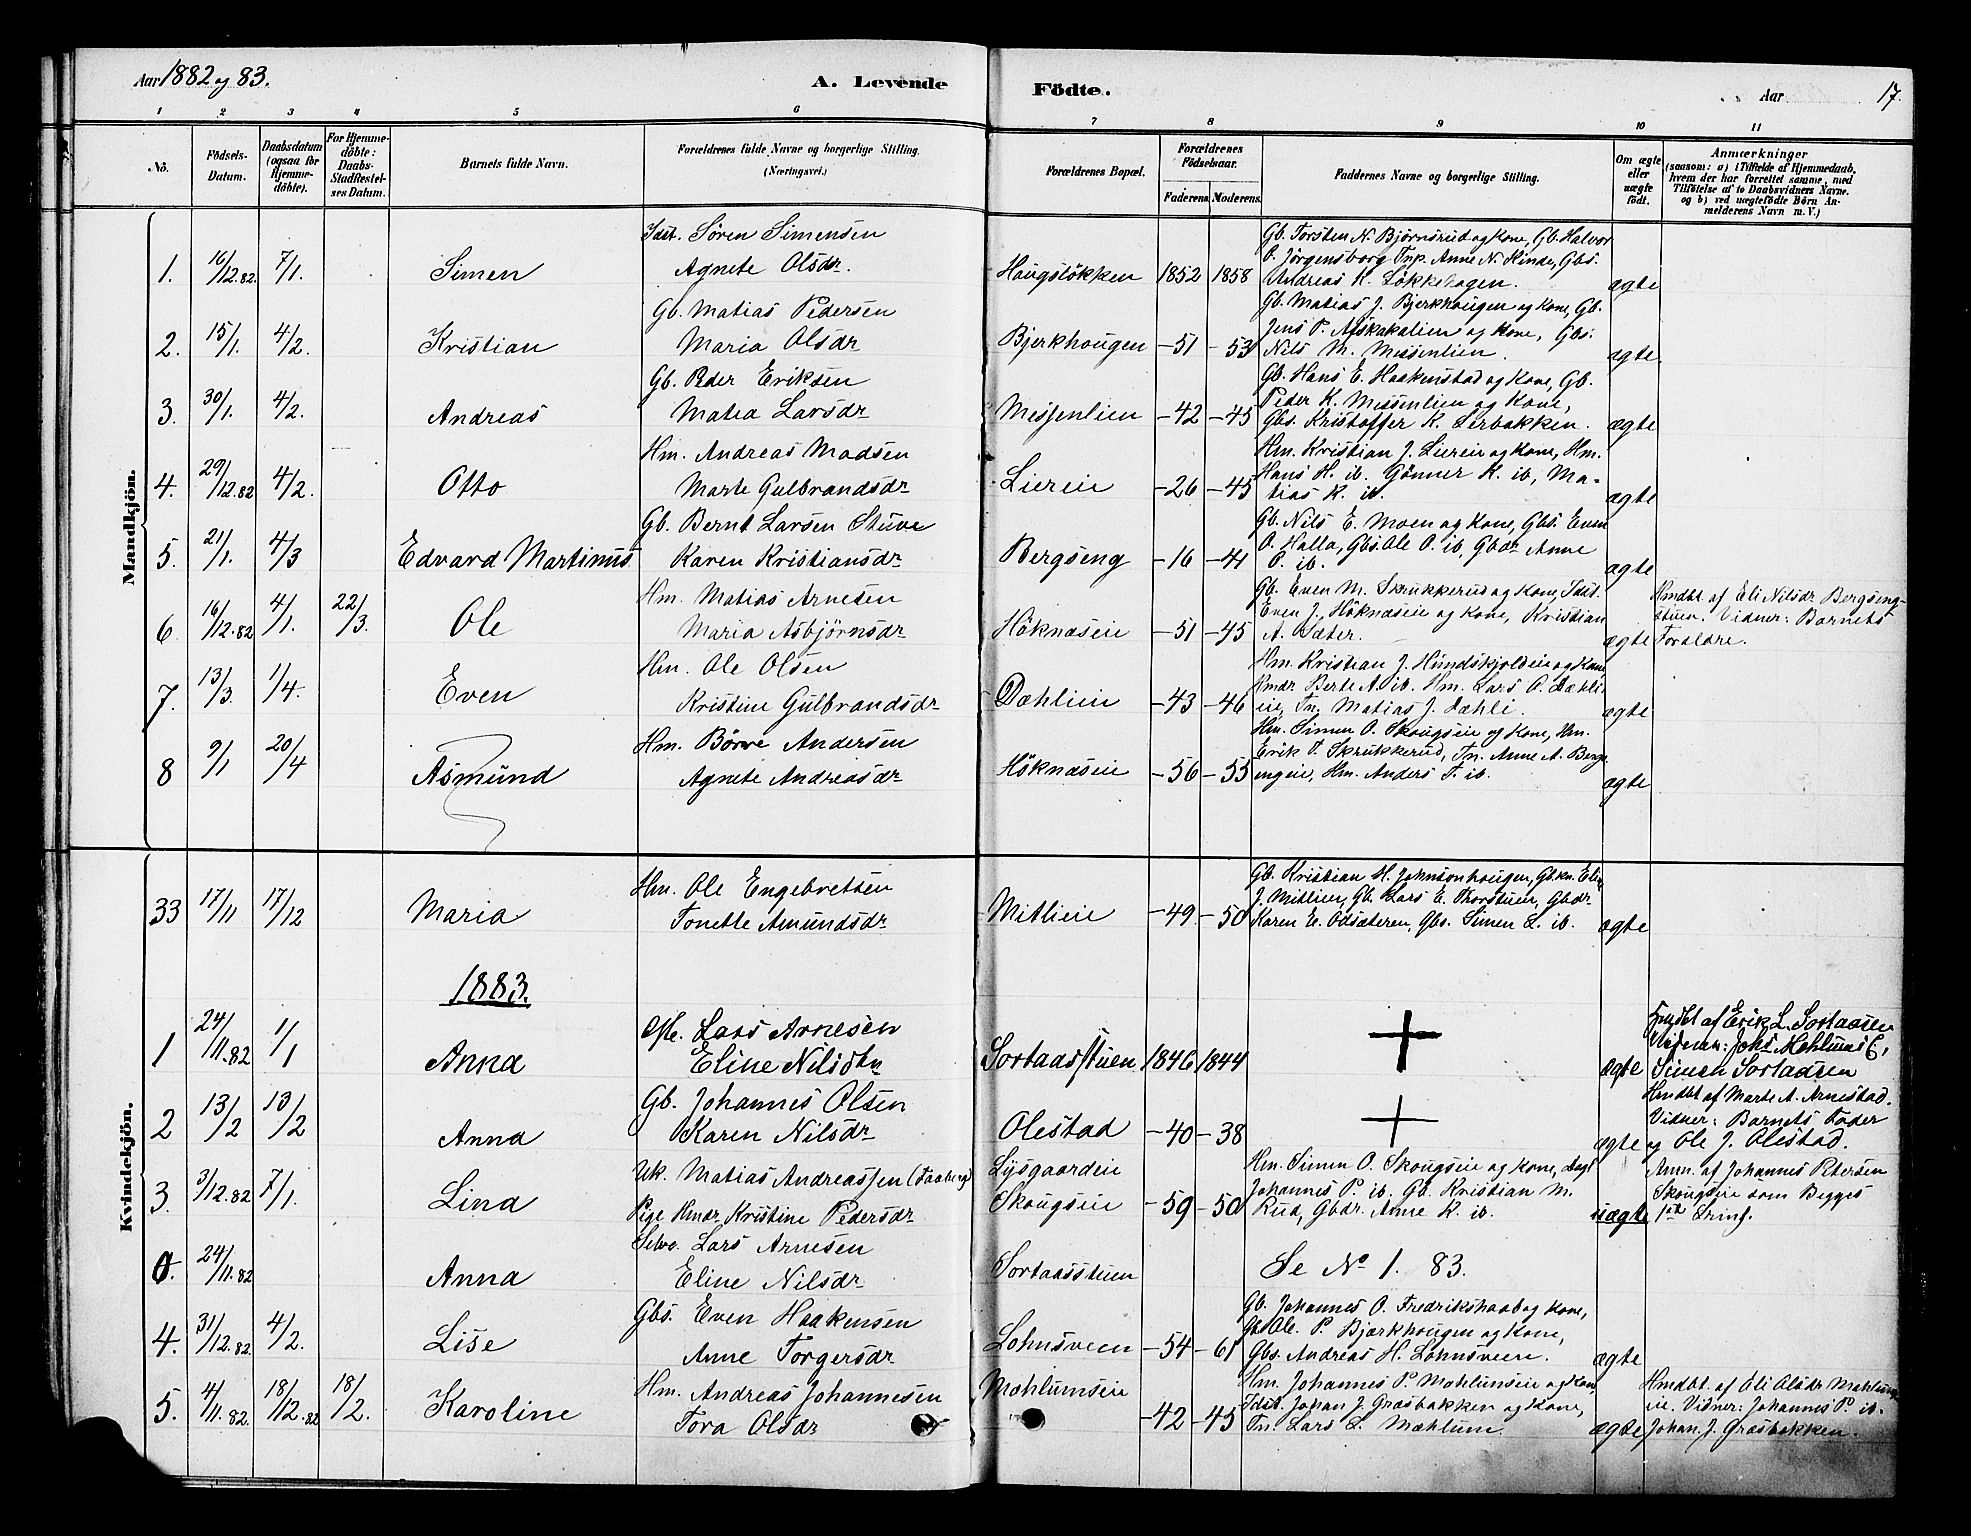 Aar 1882 og 83.
A. Levende
Födte.
Aar 17.
1 2 3 4 5 6 7 8 9 10 11
No.
Födsels-Datum.
Daabsdatum (ogsaa for Hjemmedöbte).
For Hjemmedöbte: Daabs-Stadfæstelses Datum.
Barnets fulde Navn.
Forældrenes fulde Navne og borgerlige Stilling. (Næringsvei.)
Forældrenes Bopæl.
Forældrenes Födselsaar.
Faderens. Moderens.
Faddernes Navne og borgerlige Stilling.
Om ægte eller uægte födt.
Anmærkninger (saasom: a) i Tilfælde af Hjemmedaab, hvem der har forrettet samme, med Tilföielse af to Daabsvidners Navne. og b) ved uægtefödte Börn Anmelderens Navn m. V.)
Mandkjön.
Idst. Sören Simensen
Gb. Torsten N. Björnsrud og Kone, Gb. Halvor
1. 16/12.82. 7/1. Simen Agnete Olsdr. Haugslökken 1852 1858 Jörgensborg Tnp. Anne N. Hinde, Gbs.
Andreas K. Lökkehagen. ægte
Gb. Matias Pedersen
Gb. Matias J. Bjerkhougen og Kone, Gb.
2. 15/1. 4/2. Kristian Maria Olsdr Bjerkhougen -51 -53 Jens P. Afskakalien og Kone, Gbs.
Nils M. Messenlien. ægte
Gb. Peder Eriksen
Gb. Hans E. Haakenstad og Kone, Gb.
3. 30/1. 4/2. Andreas Matea Larsdr Messenlien -42 -45 Peder K. Messenlien og Kone,
Gbs. Kristoffer K. Lerbakken. ægte
Hm. Andreas Madsen
Hm. Kristian J. Liereie og Kone, Hm.
4. 29/12.82 4/2. Otto Marte Gulbrandsdr Liereie -26 -45 Hans H. ib. Gönner K. ib, Matias
K. ib. ægte
Gb. Bernt Larsen Stuve
Gb. Nils E. Moen og Kone, Gbs. Even
5. 21/1. 4/3 Edvard Martinus Karen Kristiansdr Bergseng -16 -41 O. Halla, Gbs. Ole O. ib, Gbdr Anne
O. ib. ægte
Hm. Matias Arnesen
Gb. Even M. Skrukkerud og Kone, Idst.
6 16/12.82 4/1. 22/3. Ole Maria Asbjörnsdr Höknæseie -51 -45 Even J. Höknæseie og Kone, Kristian
A. Sæter. ægte
Hmdbt. af Eli Nilsdr Bergsengstuen. Vidner: Barnets Forældre.
Hm. Ole Olsen
Hm. Kristian J. Hundskjoldeie og Kone
7. 13/3. 1/4. Even Kristine Gulbrandsdr Dæhlieie -43 -46 Hmdr Berte A. ib. Hm. Lars O. Dæhlieie,
Tn. Matias J. Dæhli. ægte
Hm. Börre Andersen
Hm. Simen O. Skougseie og Kone, Hm.
8 9/1 20/4 Asmund Agnete Andreasdr Höknæseie -56 -55 Erik T. Skrukkerud, Tn. Anne A. Bergsengeie,
Hm. Anders T. ib. ægte
Kvindekjön.
Hm. Ole Engebretsen
Gb. Kristian H. Johnsonhougen, Gbkn. Eline
33 17/11 17/12 Maria Tonette Amundsdr Mitlieie -49. -50 J. Mitlien, Gb. Lars E. Thorstuen, Gbdr
Karen E. Odsæteren, Gbs. Simen L. ib. ægte
1883.
Lars Arnesen
1 24/11.82 1/1 Anna Eline Nilsdtr Sortaasstuen 1846 1844 + ægte
Hmdbt af Erik L. Sortaasen Vidner: Johs Mæhlum &, Simen Sortaasen
Gb. Johannes Olsen
2 13/2 13/2 Anna Karen Nilsdr Olestad -40 -38 + ægte
Hmdbt af Marte A. Arnestad. Vidner: Barnets Fader og Ole J. Olestad.
Uk. Matias Andreassen (Faaberg) Lysgaardeie
Hm. Simen O. Skougseie og Kone, Dagl
3. 3/12.82 7/1. Lina Pige Hmdr Kristine Pedersdr Skougseie -59 -50 Johannes P. ib. Gb. Kristian M.
Rud, Gbdr. Anne K. ib. uægte
Anm. af Johannes Petersen Skougseie som Begges 1ste Leirm.
Selve. Lars Arnesen
0. 24/11.82 Anna Eline Nilsdr Sortaasstuen Se No 1. 83.
Gbs. Even Haakensen
Gb. Johannes O. Fredrikshaab og Kone,
4. 31/12.82. 4/2. Lise Anne Torgersdr Lohnsveen -54 -61 Gb. Ole. P. Bjærkhougen og Kone,
Gbs. Andreas H. Lohnsveen. ægte
Hm. Andreas Johannesen Mæhlumseie
Hm. Johannes P. Mæhlumseie og Kone
5. 4/11.82. 18/12.82 18/2. Karoline Tora Olsdr -42 -45 Idst. Johan J. Græsbakken og Kone,
Tn. Lars L. Mæhlum ægte
Hmdbt. af Oli Olsdr Mæhlumseie. Vidner: Johannes P. ib. Johan J. Græsbakken.